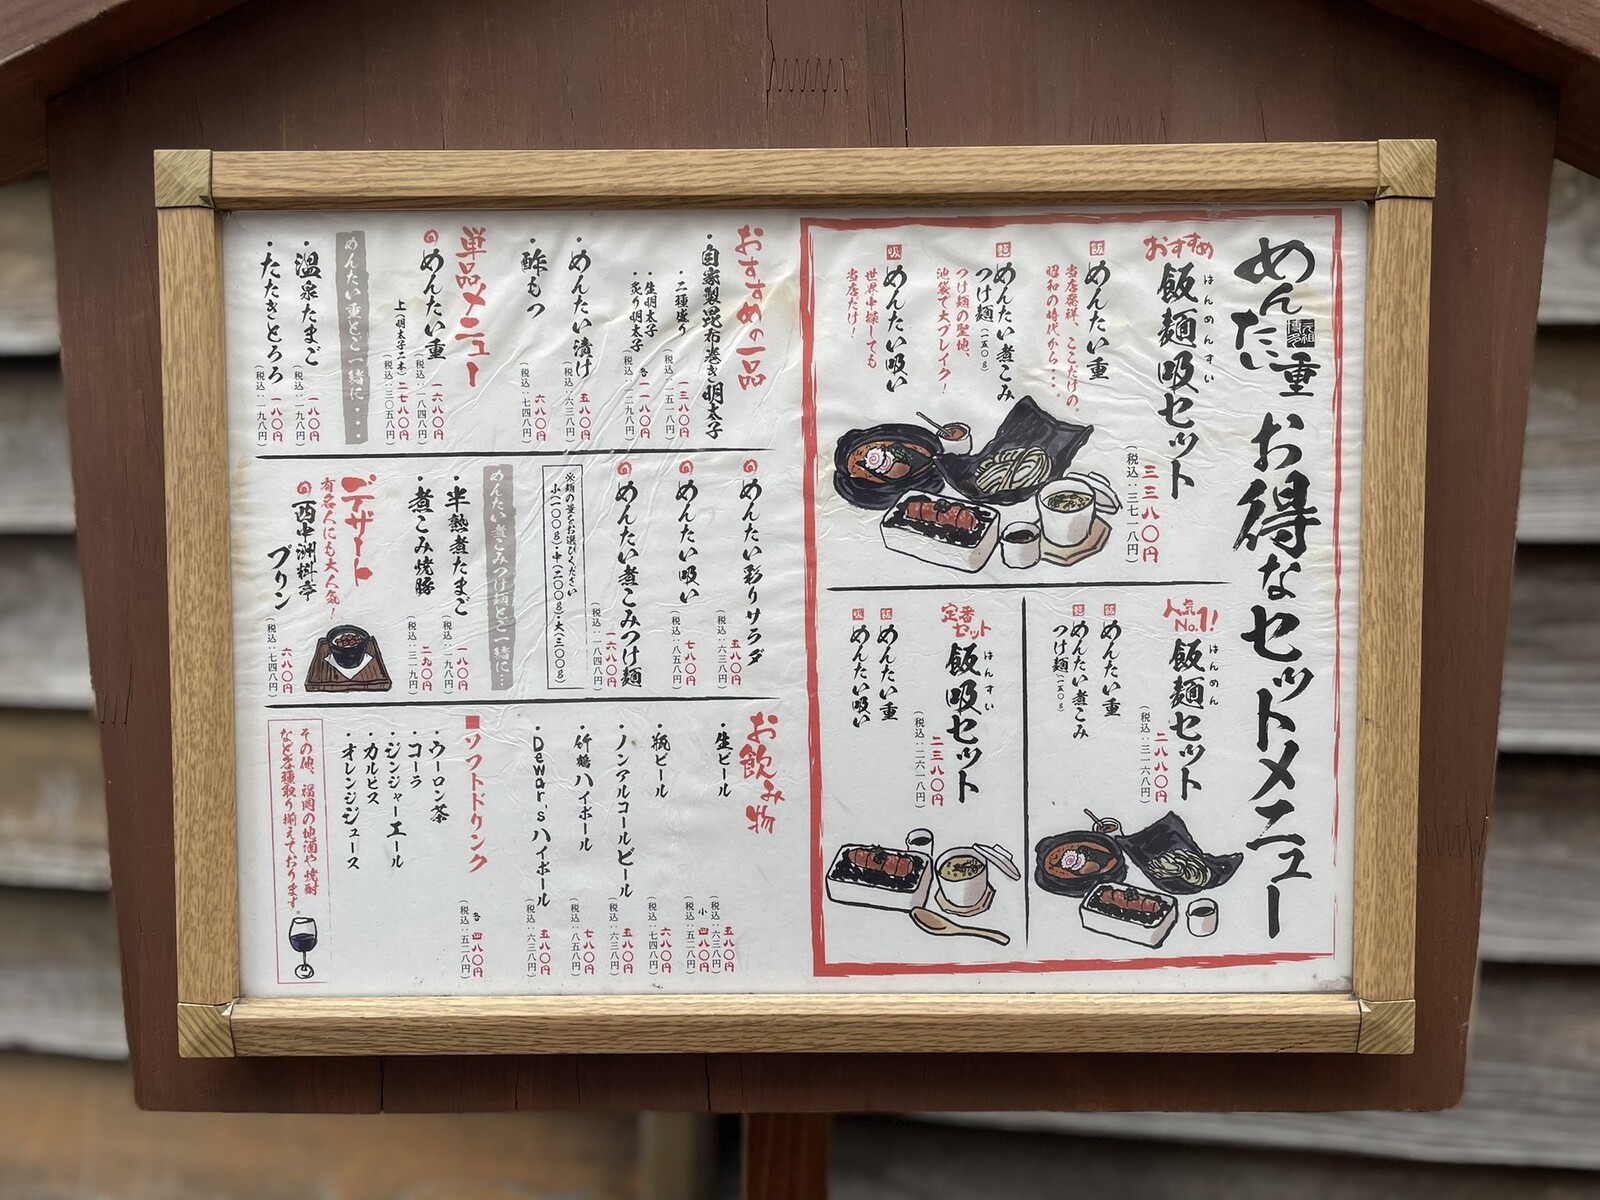 元祖博多
めんたい重
お得なセットメニュー
おすすめ
はんめんすい
飯麺吸セット
三三八〇円
(税込:三七一八円)
飯 めんたい重
当店発祥、ここだけの。
昭和の時代から・・・
麺 めんたい煮こみ
つけ麺(一五〇g)
つけ麺の聖地、
池袋で大ブレイク!
吸 めんたい吸い
世界中探しても
当店だけ!
人気No.1!
はんめん
飯麺セット
二八八〇円
(税込:三一六八円)
飯 めんたい重
麺 めんたい煮こみ
つけ麺(一五〇g)
定番セット
はんすい
飯吸セット
二三八〇円
(税込:二六一八円)
飯 めんたい重
吸 めんたい吸い
おすすめの一品
・自家製昆布巻き明太子
・二種盛り
一三八〇円
(税込:一五一八円)
・生明太子
・炙り明太子
各一一八〇円
(税込:一二九八円)
・めんたい漬け
五八〇円
(税込:六三八円)
・酢もつ
六八〇円
(税込:七四八円)
単品メニュー
めんたい重
一六八〇円
(税込:一八四八円)
上(明太子二本)二七八〇円
(税込:三〇五八円)
めんたい重とご一緒に・・・
・温泉たまご
一八〇円
(税込:一九八円)
・たたきとろろ
一八〇円
(税込:一九八円)
めんたい彩りサラダ
五八〇円
(税込:六三八円)
めんたい吸い
七八〇円
(税込:八五八円)
めんたい煮こみつけ麺
一六八〇円
(税込:一八四八円)
※麺の量をお選びください
小(一〇〇g)・中(二〇〇g)・大(三〇〇g)
めんたい煮こみつけ麺とご一緒に・・・
・半熟煮たまご
一八〇円
(税込:一九八円)
・煮こみ焼豚
二九〇円
(税込:三一九円)
デザート
有名人にも大人気!
西中洲料亭
プリン
六八〇円
(税込:七四八円)
お飲み物
・生ビール
五八〇円
(税込:六三八円)
小 四八〇円
(税込:五二八円)
・瓶ビール
六八〇円
(税込:七四八円)
・ノンアルコールビール
五八〇円
(税込:六三八円)
・竹鶴ハイボール
七八〇円
(税込:八五八円)
・Dewar'sハイボール
五八〇円
(税込:六三八円)
■ソフトドリンク
各 四八〇円
(税込:五二八円)
・ウーロン茶
・コーラ
・ジンジャーエール
・カルピス
・オレンジジュース
その他、福岡の地酒や焼酎
など各種取り揃えております。